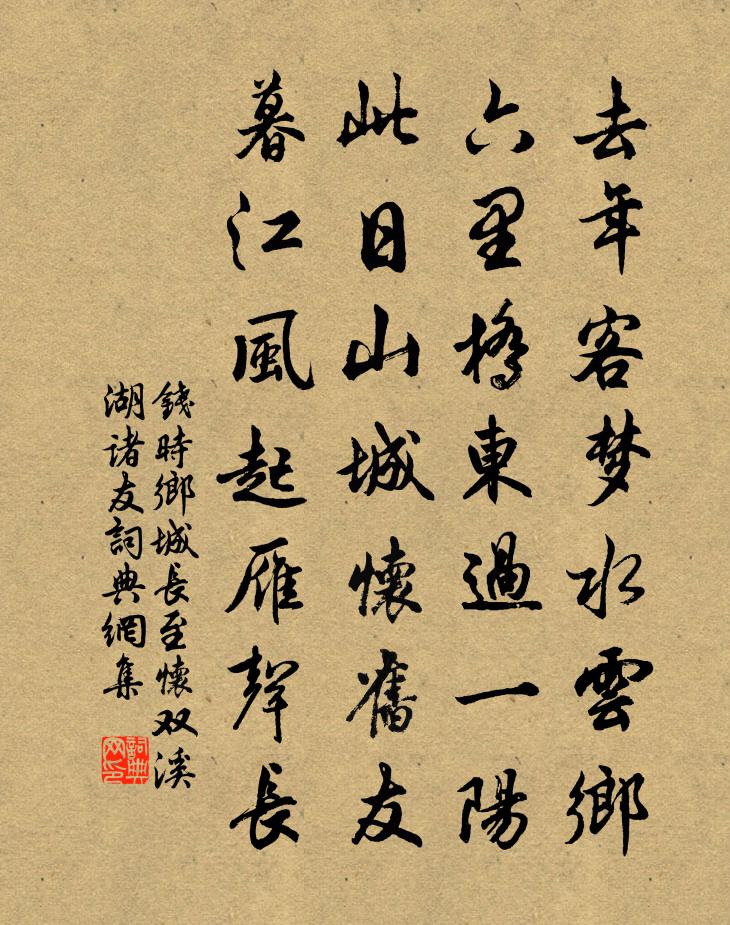 去年客梦水雲鄉
六里橋東過一陽
此日山城懷舊友
暮江風起雁聲長
錢時鄉城長至懷双溪
湖诸友詞典網集
詞典网印